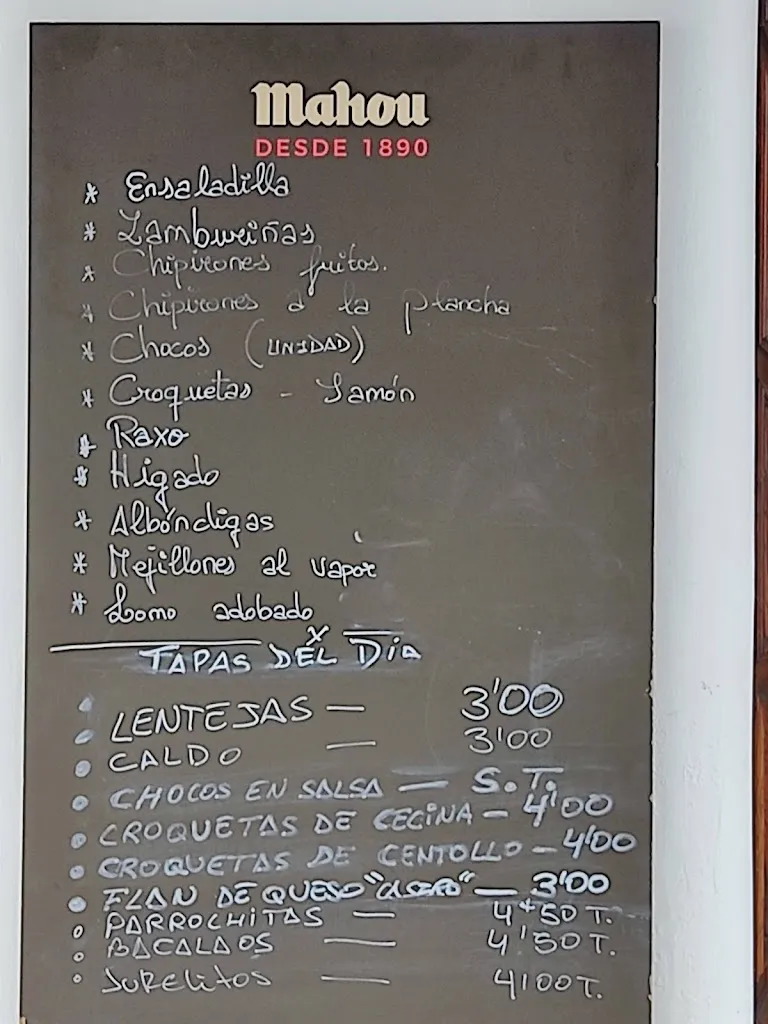 Mahou
DESDE 1890
* Ensaladilla
* Zamburiñas
* Chipirones fritos.
* Chipirones a la plancha
* Chocos (UNIDAD)
* Croquetas - Jamón
* Raxo
* Higado
* Albóndigas
* Mejillones al vapor
* Lomo adobado
TAPAS DEL DÍA
• LENTEJAS — 3'00
• CALDO — 3'00
• CHOCOS EN SALSA — S.T.
• CROQUETAS DE CECINA — 4'00
• CROQUETAS DE CENTOLLO — 4'00
• FLAN DE QUESO "CASERO" — 3'00
• PARROCHITAS — 4'50 T.
• BACALAOS — 4'50 T.
• JURELITOS — 4'00 T.